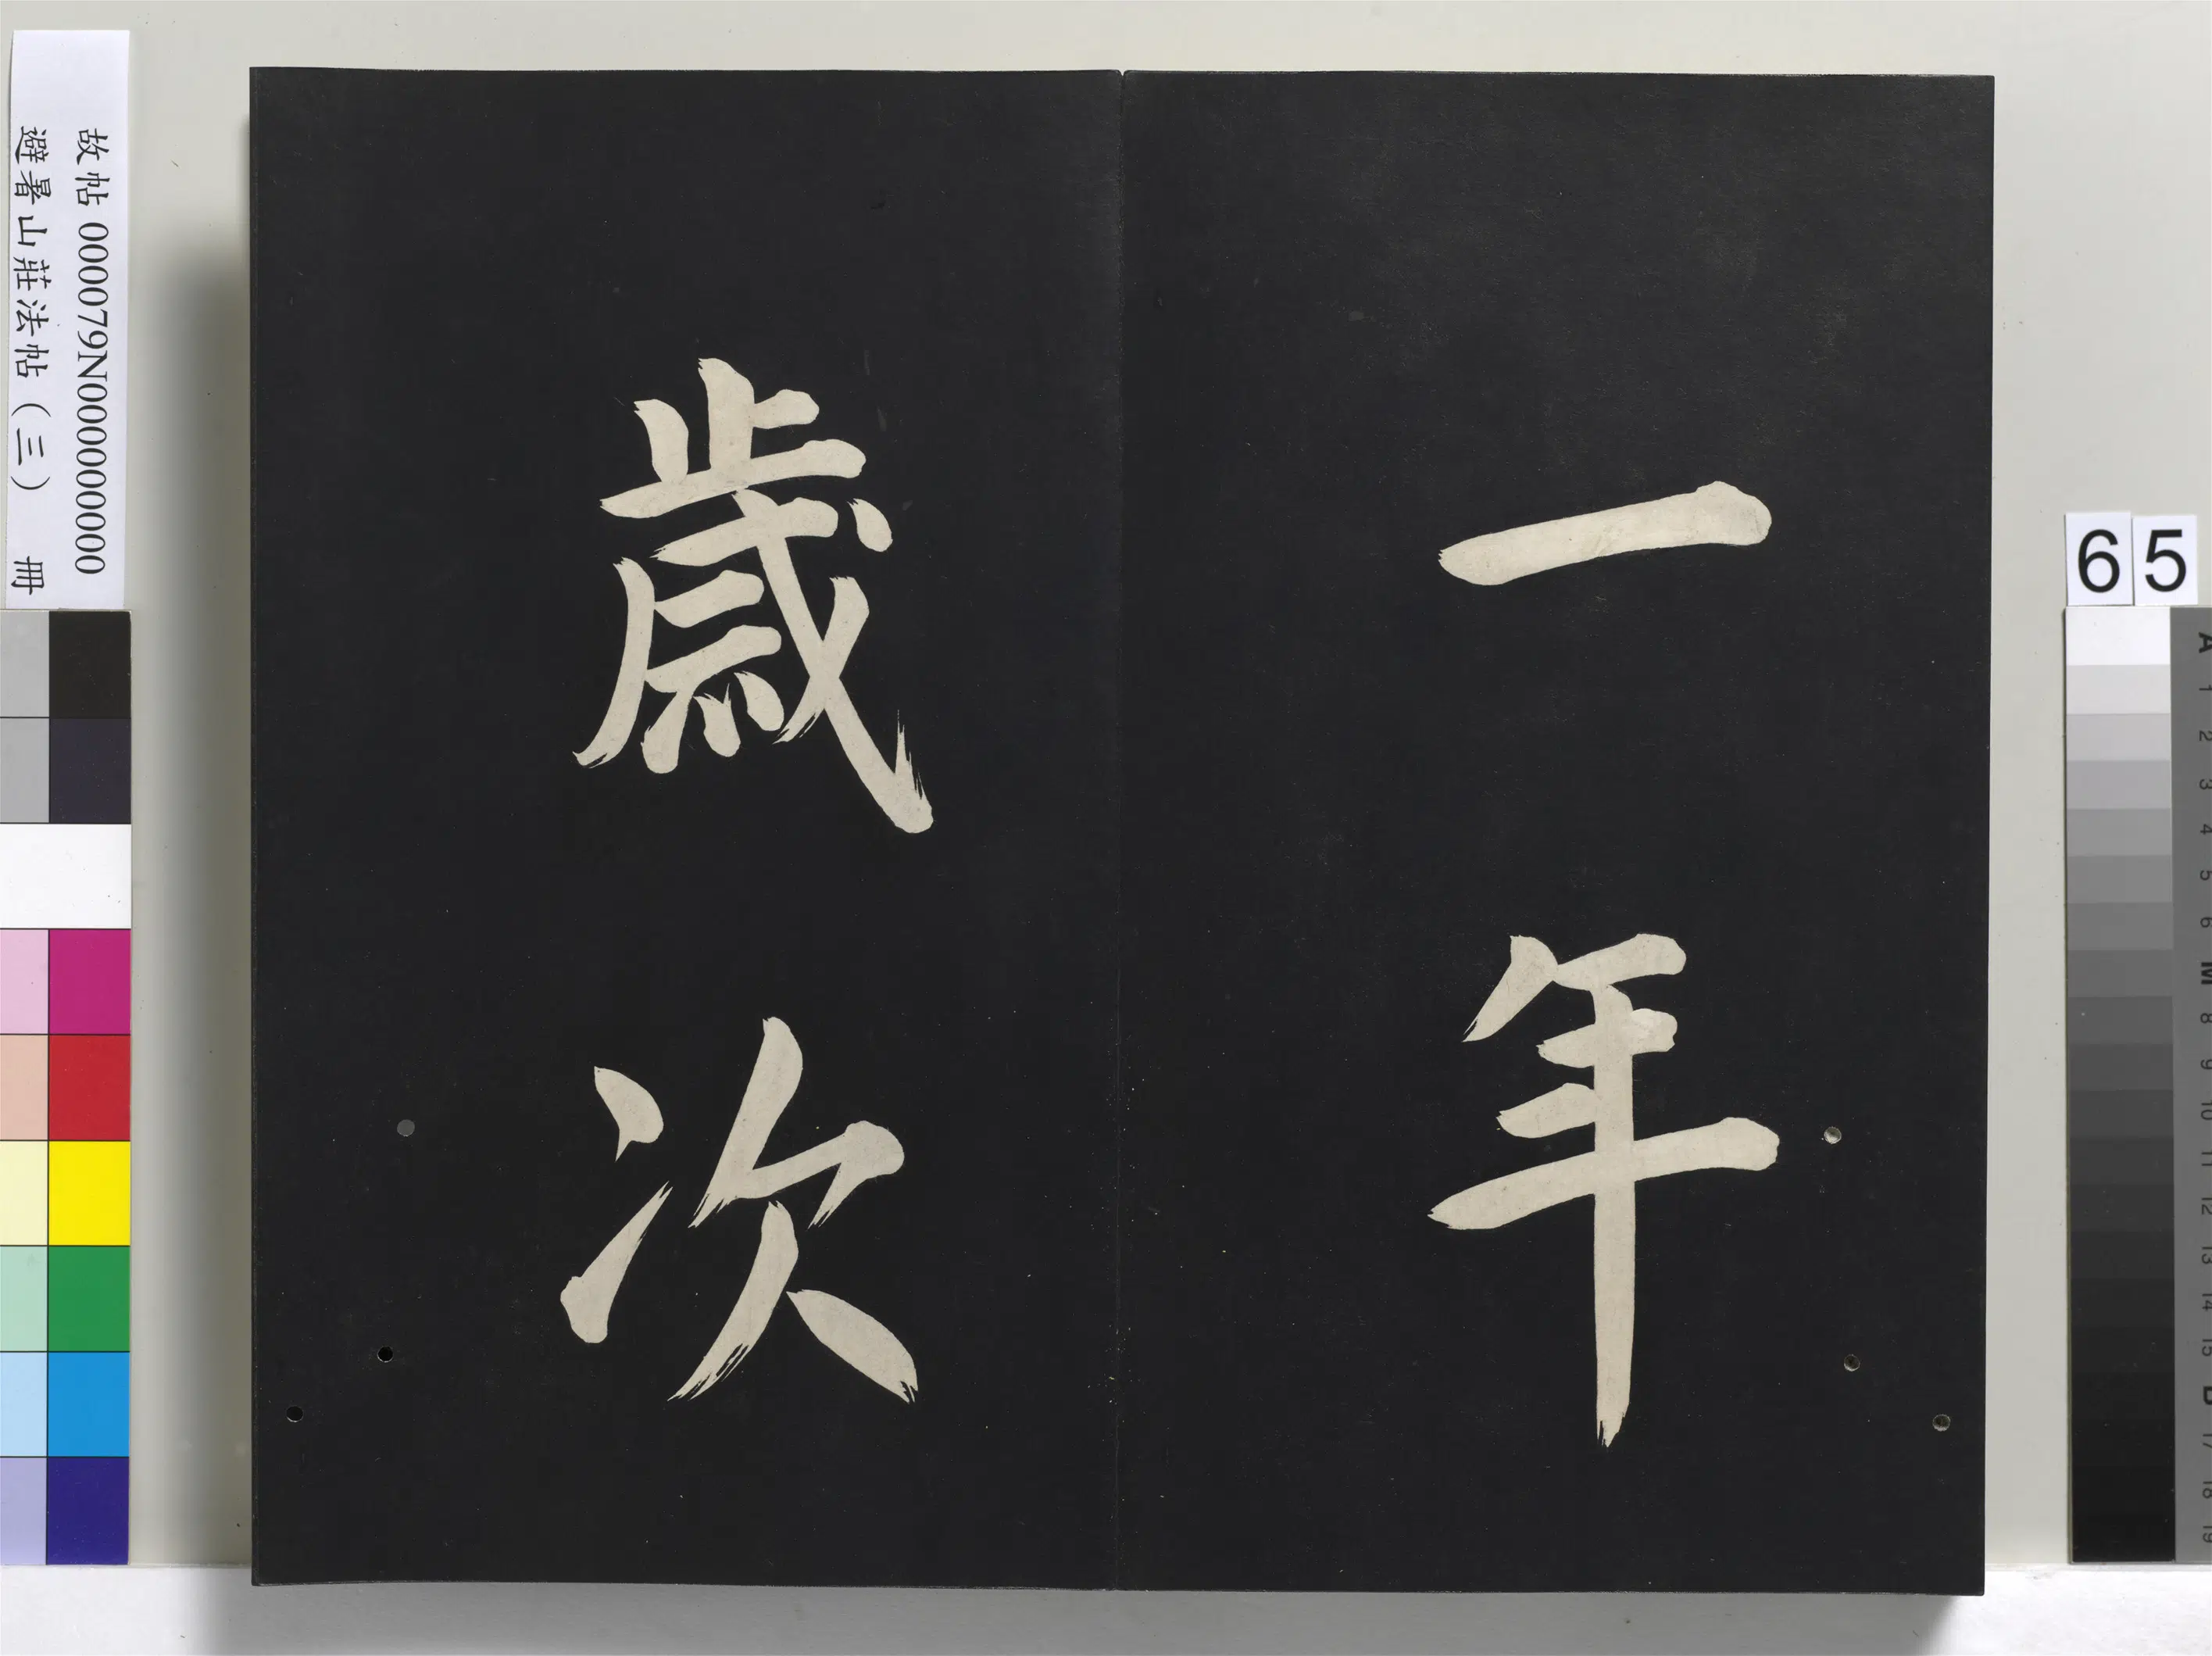 一年
歲次
故帖 000079N000000000
避暑山莊法帖（三） 冊
65
A
1
2
3
4
5
6
M
8
9
10
11
12
13
14
15
B
17
18
19